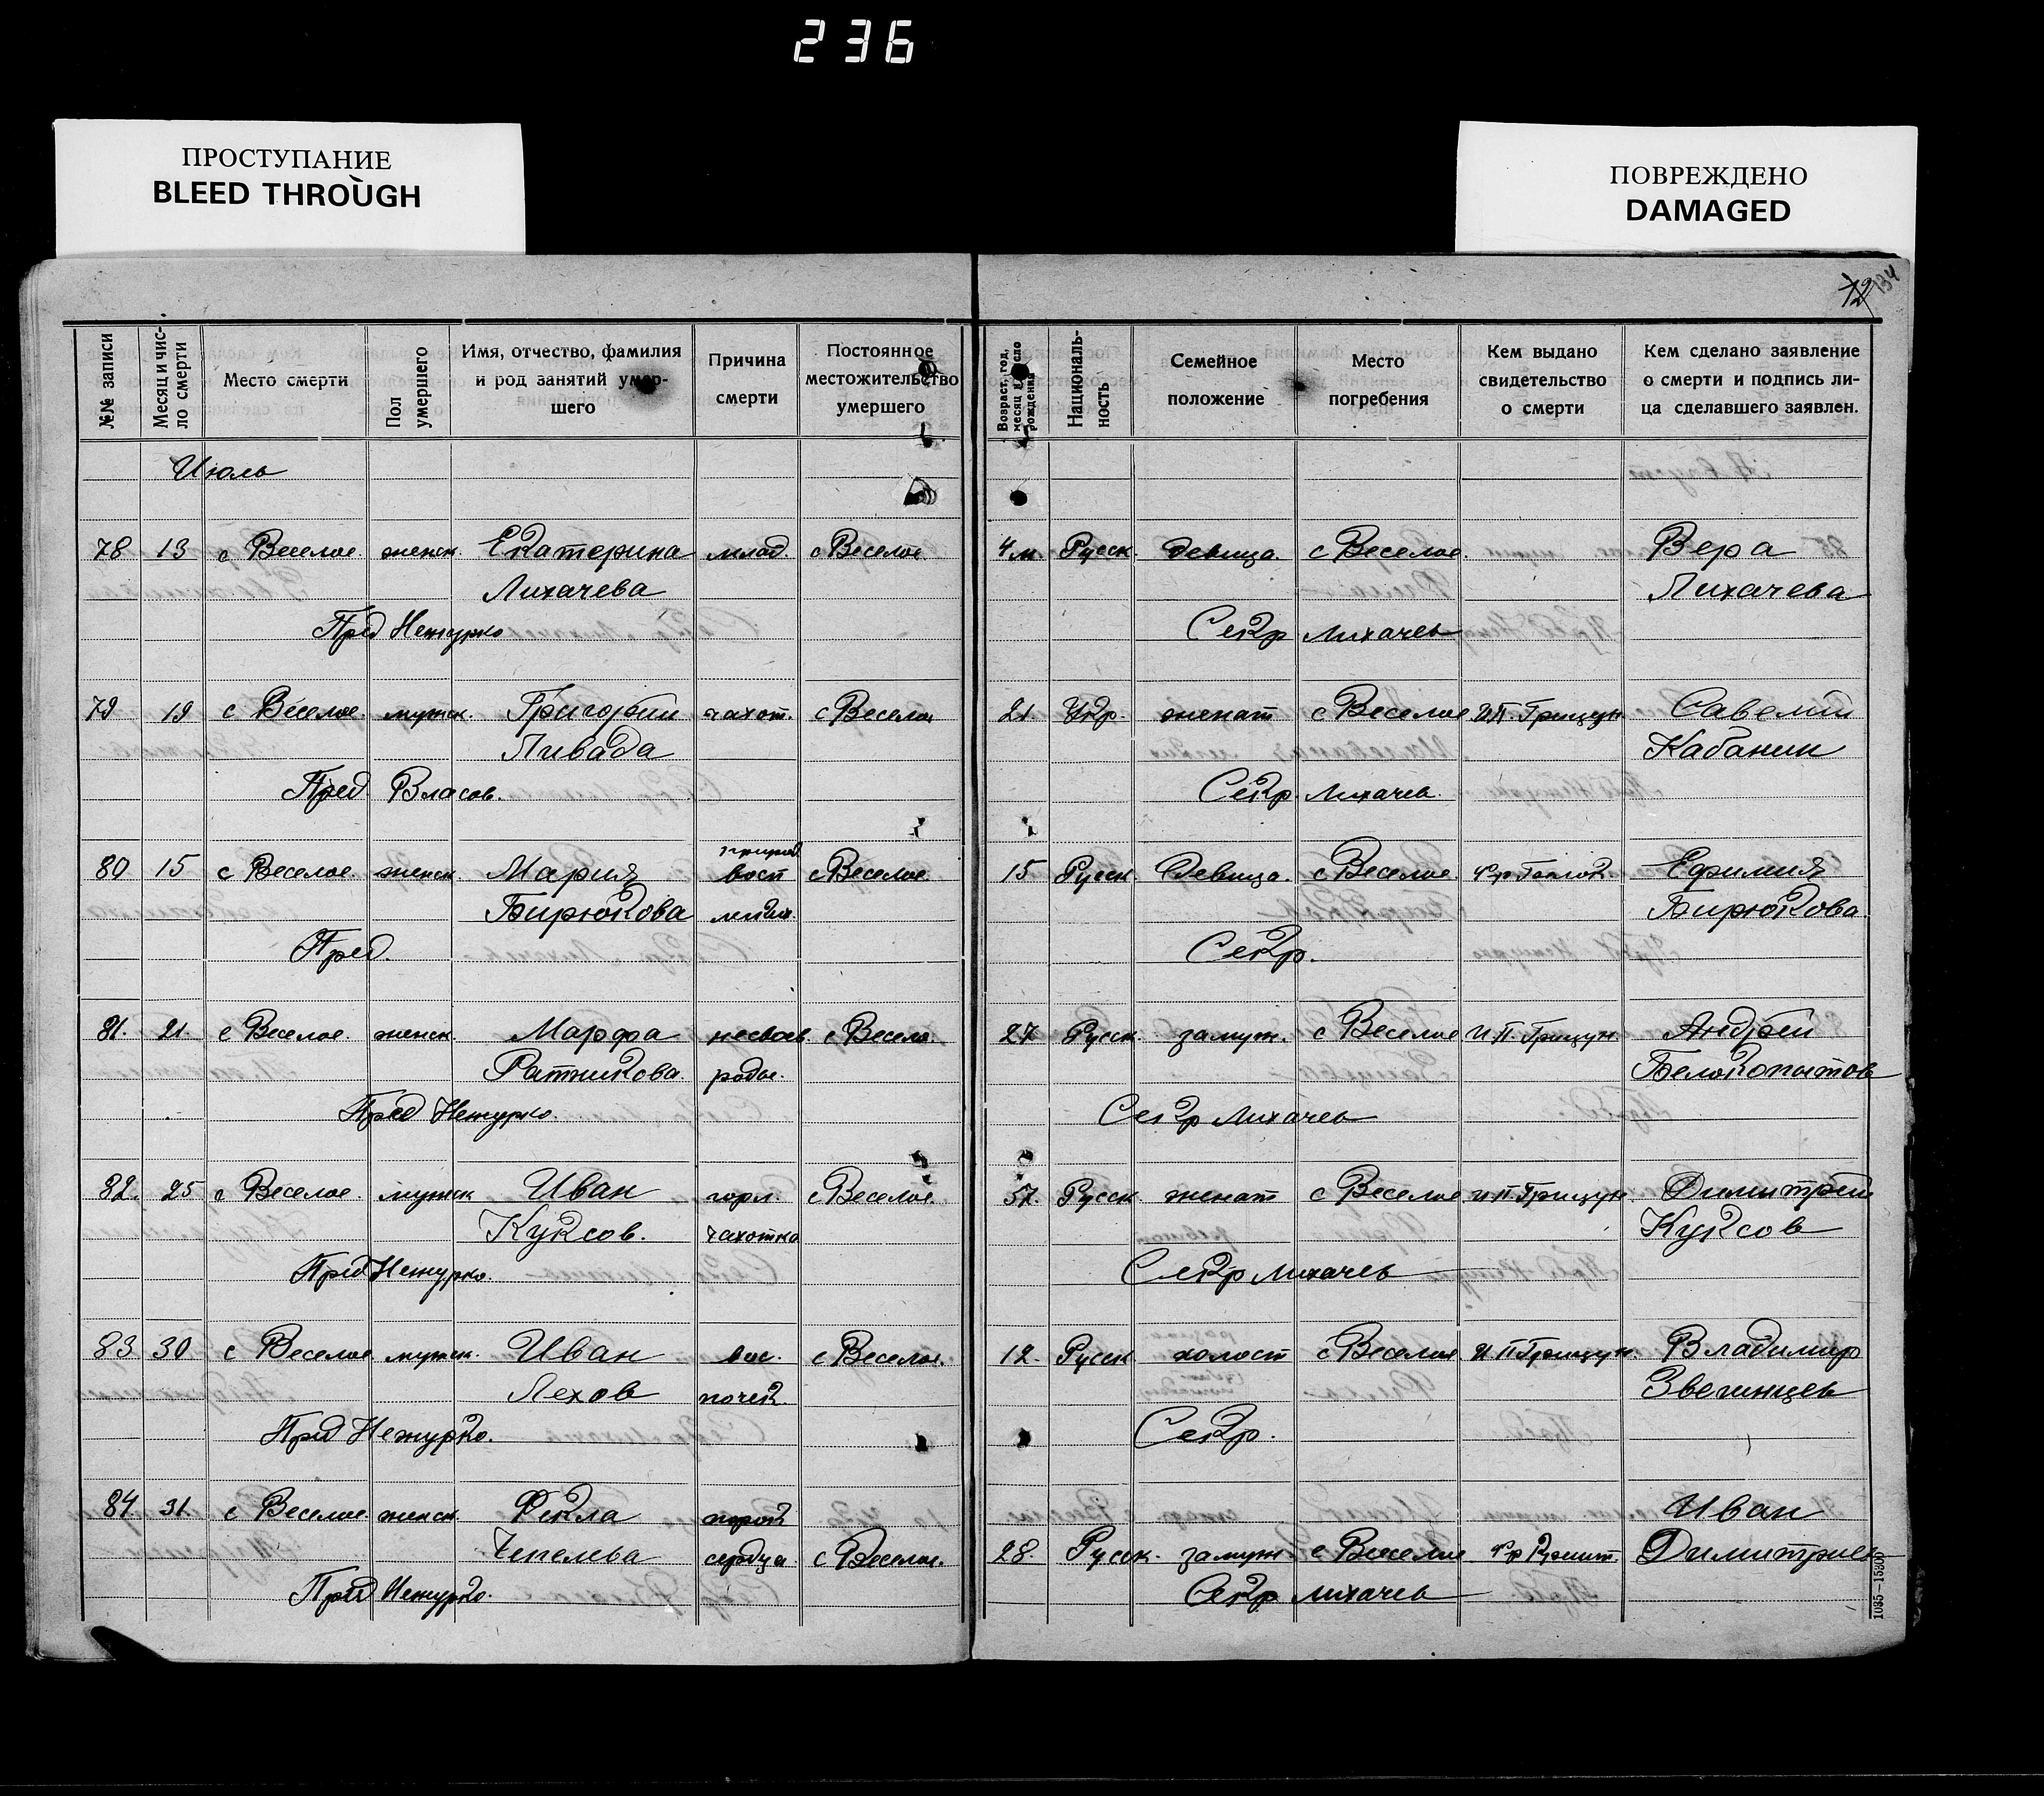 236
ПРОСТУПАНИЕ
BLEED THROUGH
ПОВРЕЖДЕНО
DAMAGED
12 134
№№ записи
Месяц и число смерти
Место смерти
Пол умершего
Имя, отчество, фамилия
и род занятий умер-
шего
Причина
смерти
Постоянное
местожительство
умершего
Возраст, год, месяц и число рождения
Националь-
ность
Семейное
положение
Место
погребения
Кем выдано
свидетельство
о смерти
Кем сделано заявление
о смерти и подпись ли-
ца сделавшего заявлен.
Июль
78 13 с Веселое женск. Екатерина млад. с Веселое 4 м Русск. девица. с Веселое. Вера
Лихачева Лихачева
Пред Нежурко Секр Лихачев
79 19 с Веселое. мужск. Григорий чахот. с Веселое 21 Укр. женат с Веселое И.П. Грицун Савелий
Ливада Кабанин
Пред. Власов. Секр. Лихачев.
80 15 с Веселое. женск. Мария восп с Веселое 15 Русск. Девица. с Веселое. Ефимия
Бирюкова легких. Бирюкова.
Пред. Секр.
81. 21. с Веселое женск. Марфа несвоев. с Весело. 27 Русск. замуж. с Веселое И.П. Грицун. Андрей
Ратникова. роды. Белокопытов
Пред Нежурко. Секр Лихачев
82. 25 с Веселое. мужск Иван горл с Веселое. 57. Русск женат с Веселое И.П. Грицун Димитрий
Куксов. чахотка Куксов
Пред Нежурко. Секр Лихачев
83 30 с Веселое мужск. Иван вос. с Веселое. 12. Русск холост с Веселое И П Грицун. Владимир
Лехов почек. Звегинцев
Пред Нежурко. Секр.
84. 31. с Веселое. женск. Фекла порок Иван
Чепелева сердца с Веселое. 28. Русск. замуж с Веселое Димитриев
Пред Нежурко. Секр Лихачев
1035—15300